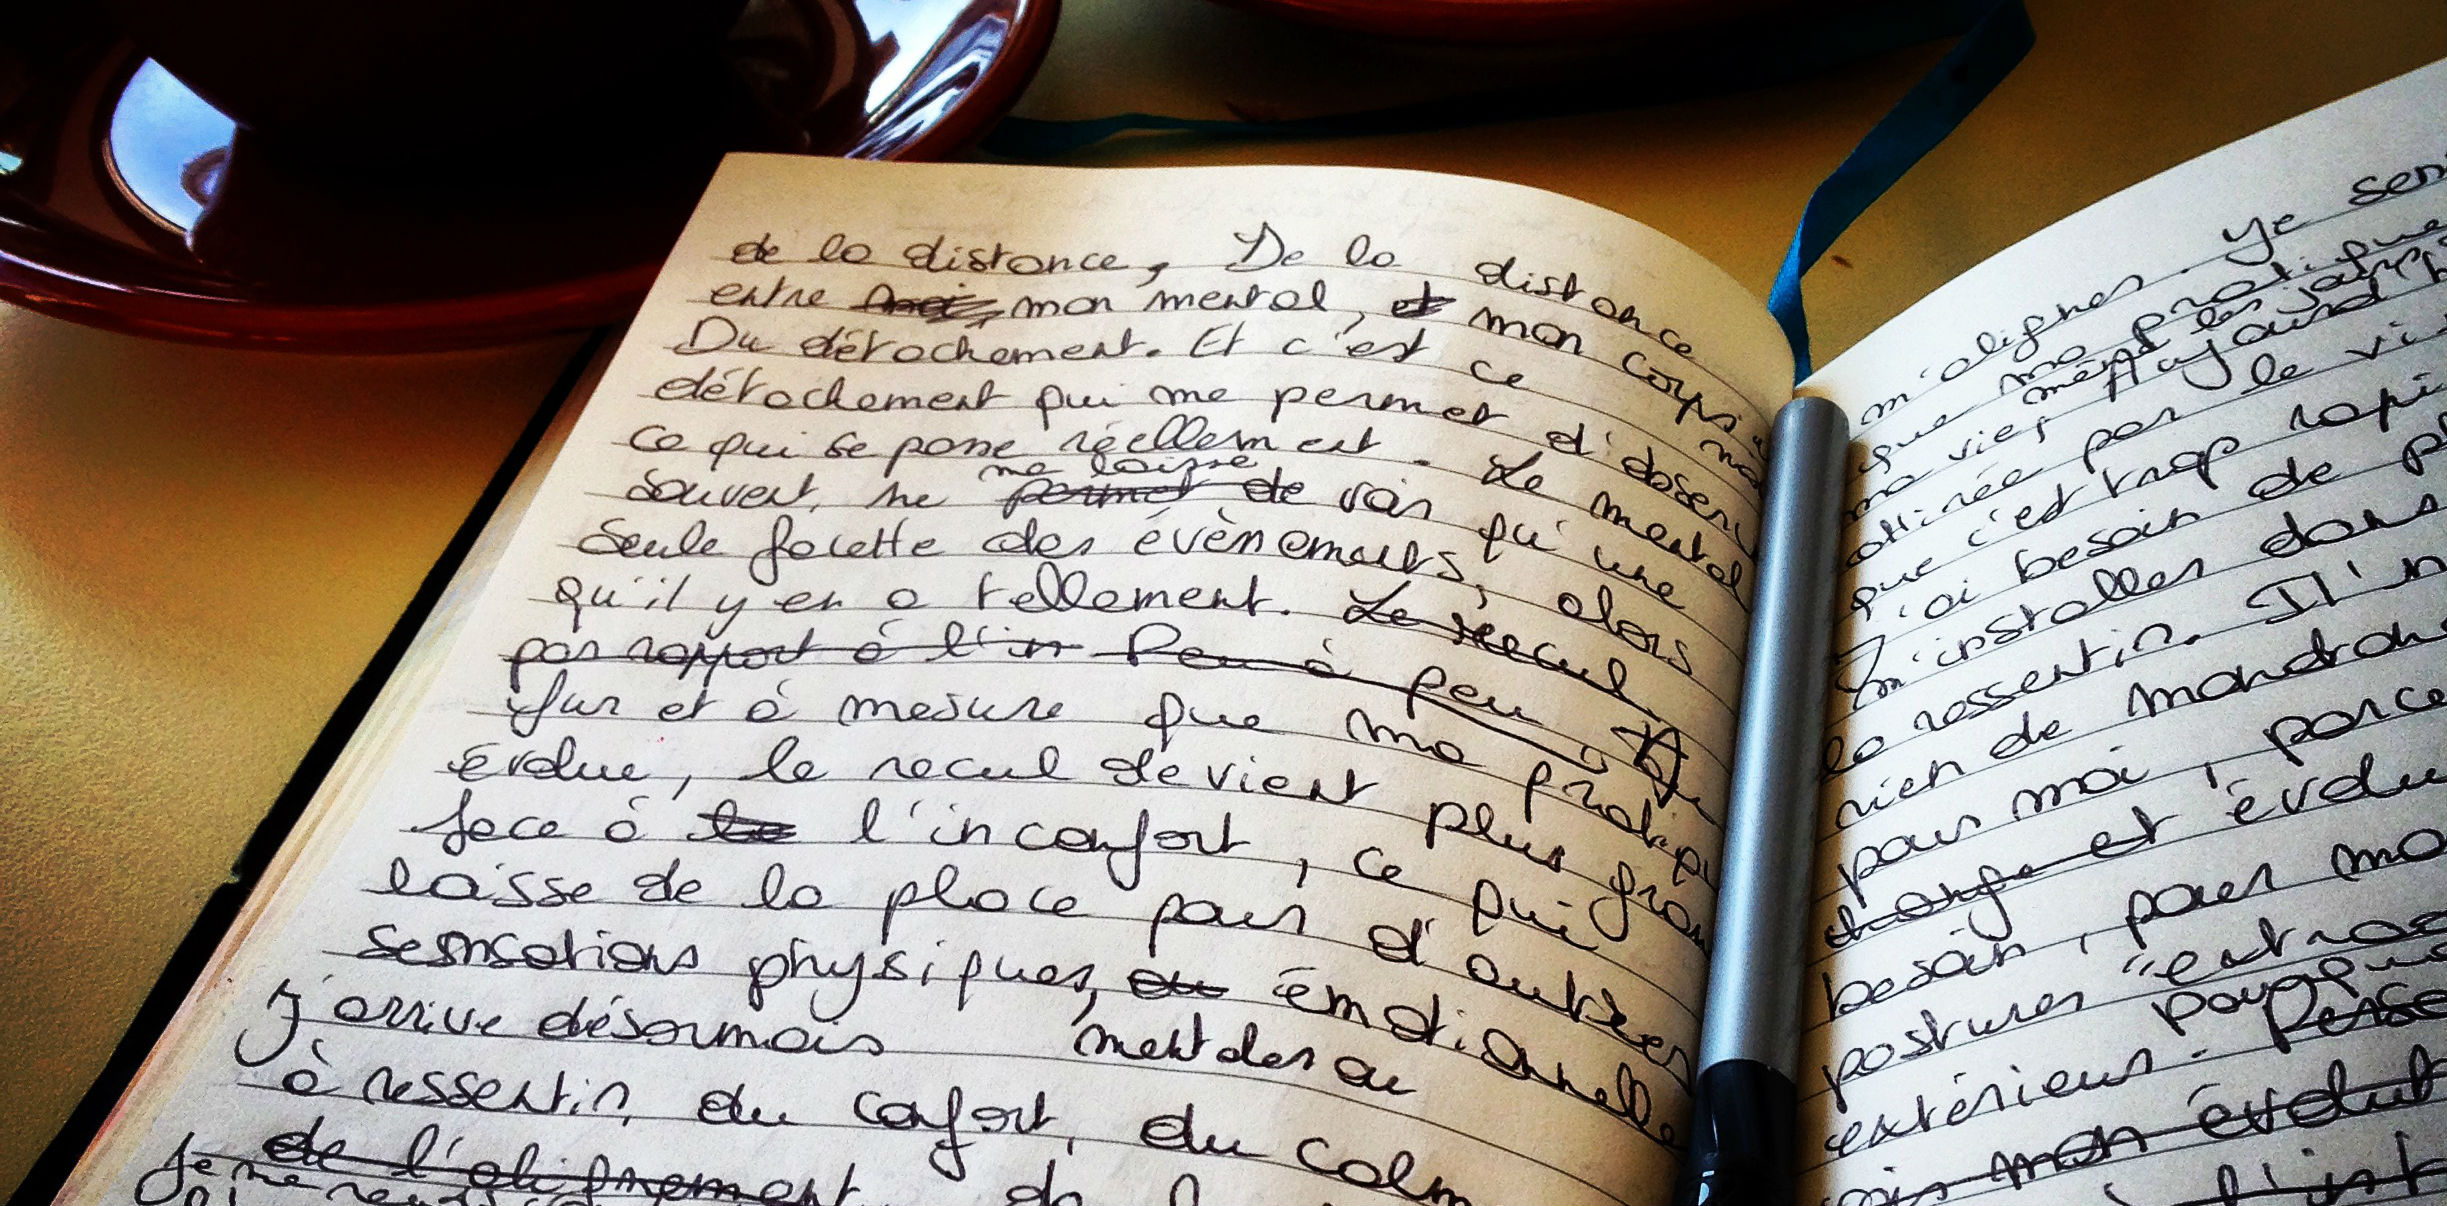 de la distance, De la distance
entre mon mental, et mon corps
Du détachement. Et c'est ce
détachement qui me permet d'observ
ce qui se passe réellement. Le mental
me laisse
souvent, ne permet de voir qu'une
seule facette des évènements, alors
qu'il y en a tellement. Le recul
par rapport à l'in Peu à peu, Au
fur et à mesure que ma pratiqu
évolue, le recul devient plus gran
face à l'inconfort, ce qui
laisse de la place pour d'autres
sensations physiques, ou émotionnelle
J'arrive désormais mentales ou
à ressentir, du confort, du calm
de l'alignement
Je me
m'aligner. Je sen
que ma pratique
même les
ma vie, Aujourd'h
attirée par le vi
que c'est trop rapi
J'ai besoin de pl
m'installer dans
le ressentir. Il n
rien de
pour moi, parce
change et évolu
besoin, pour mo
postures "extra
pourqu
extérieur. Pense
mon évolut
l'int